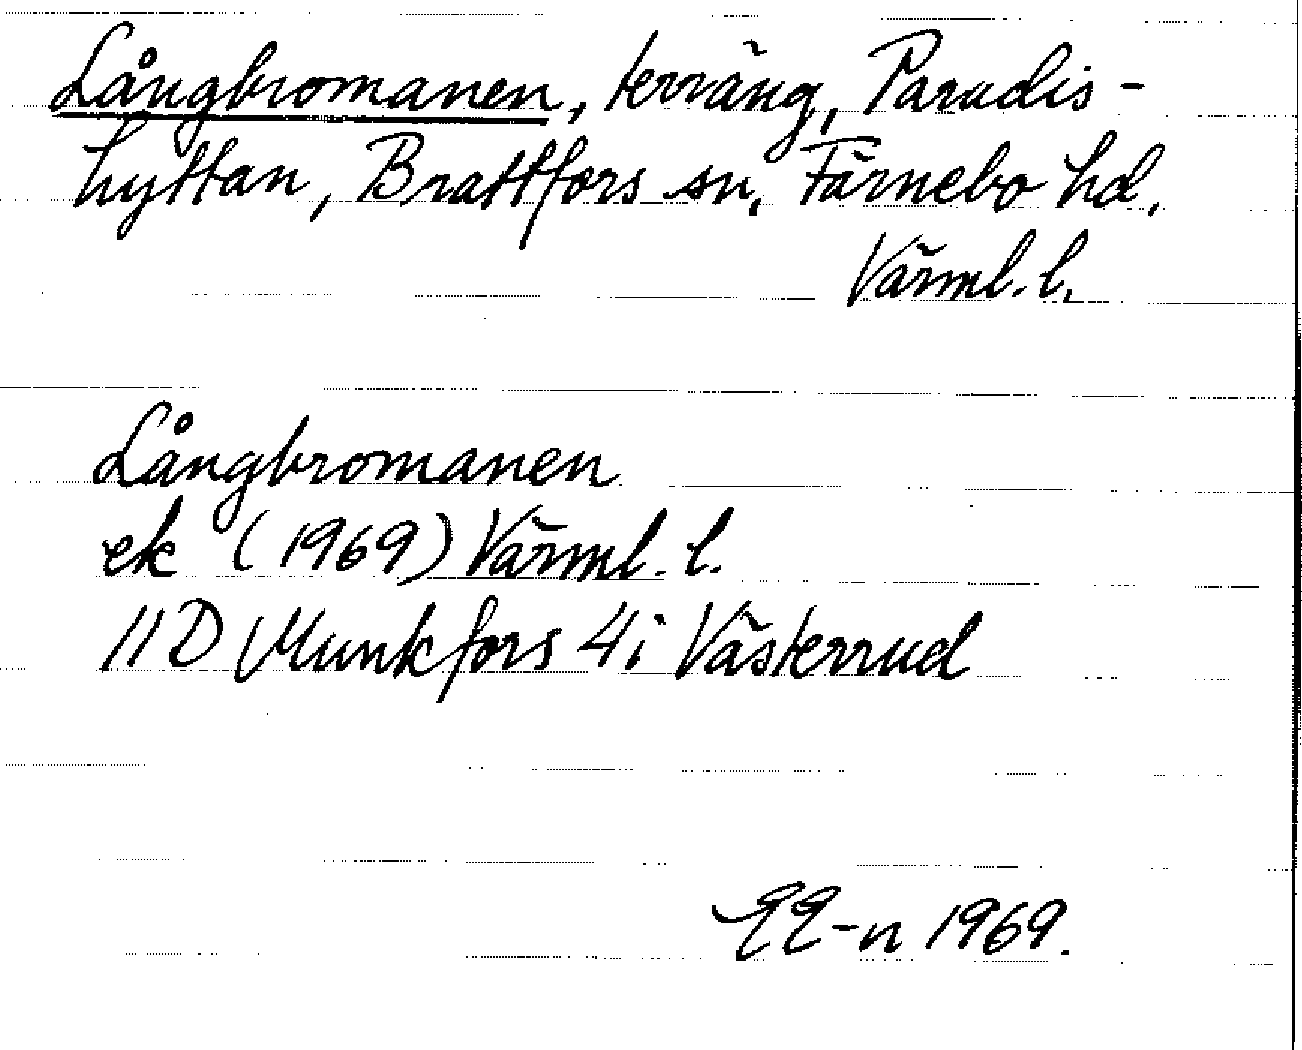 Långbromanen, terräng, Paradis-
hyttan, Brattfors sn, Färnebo hd,
Värml. l.
Långbromanen
ek (1969) Värml. l.
11D Munkfors 4i Västerrud
1969.